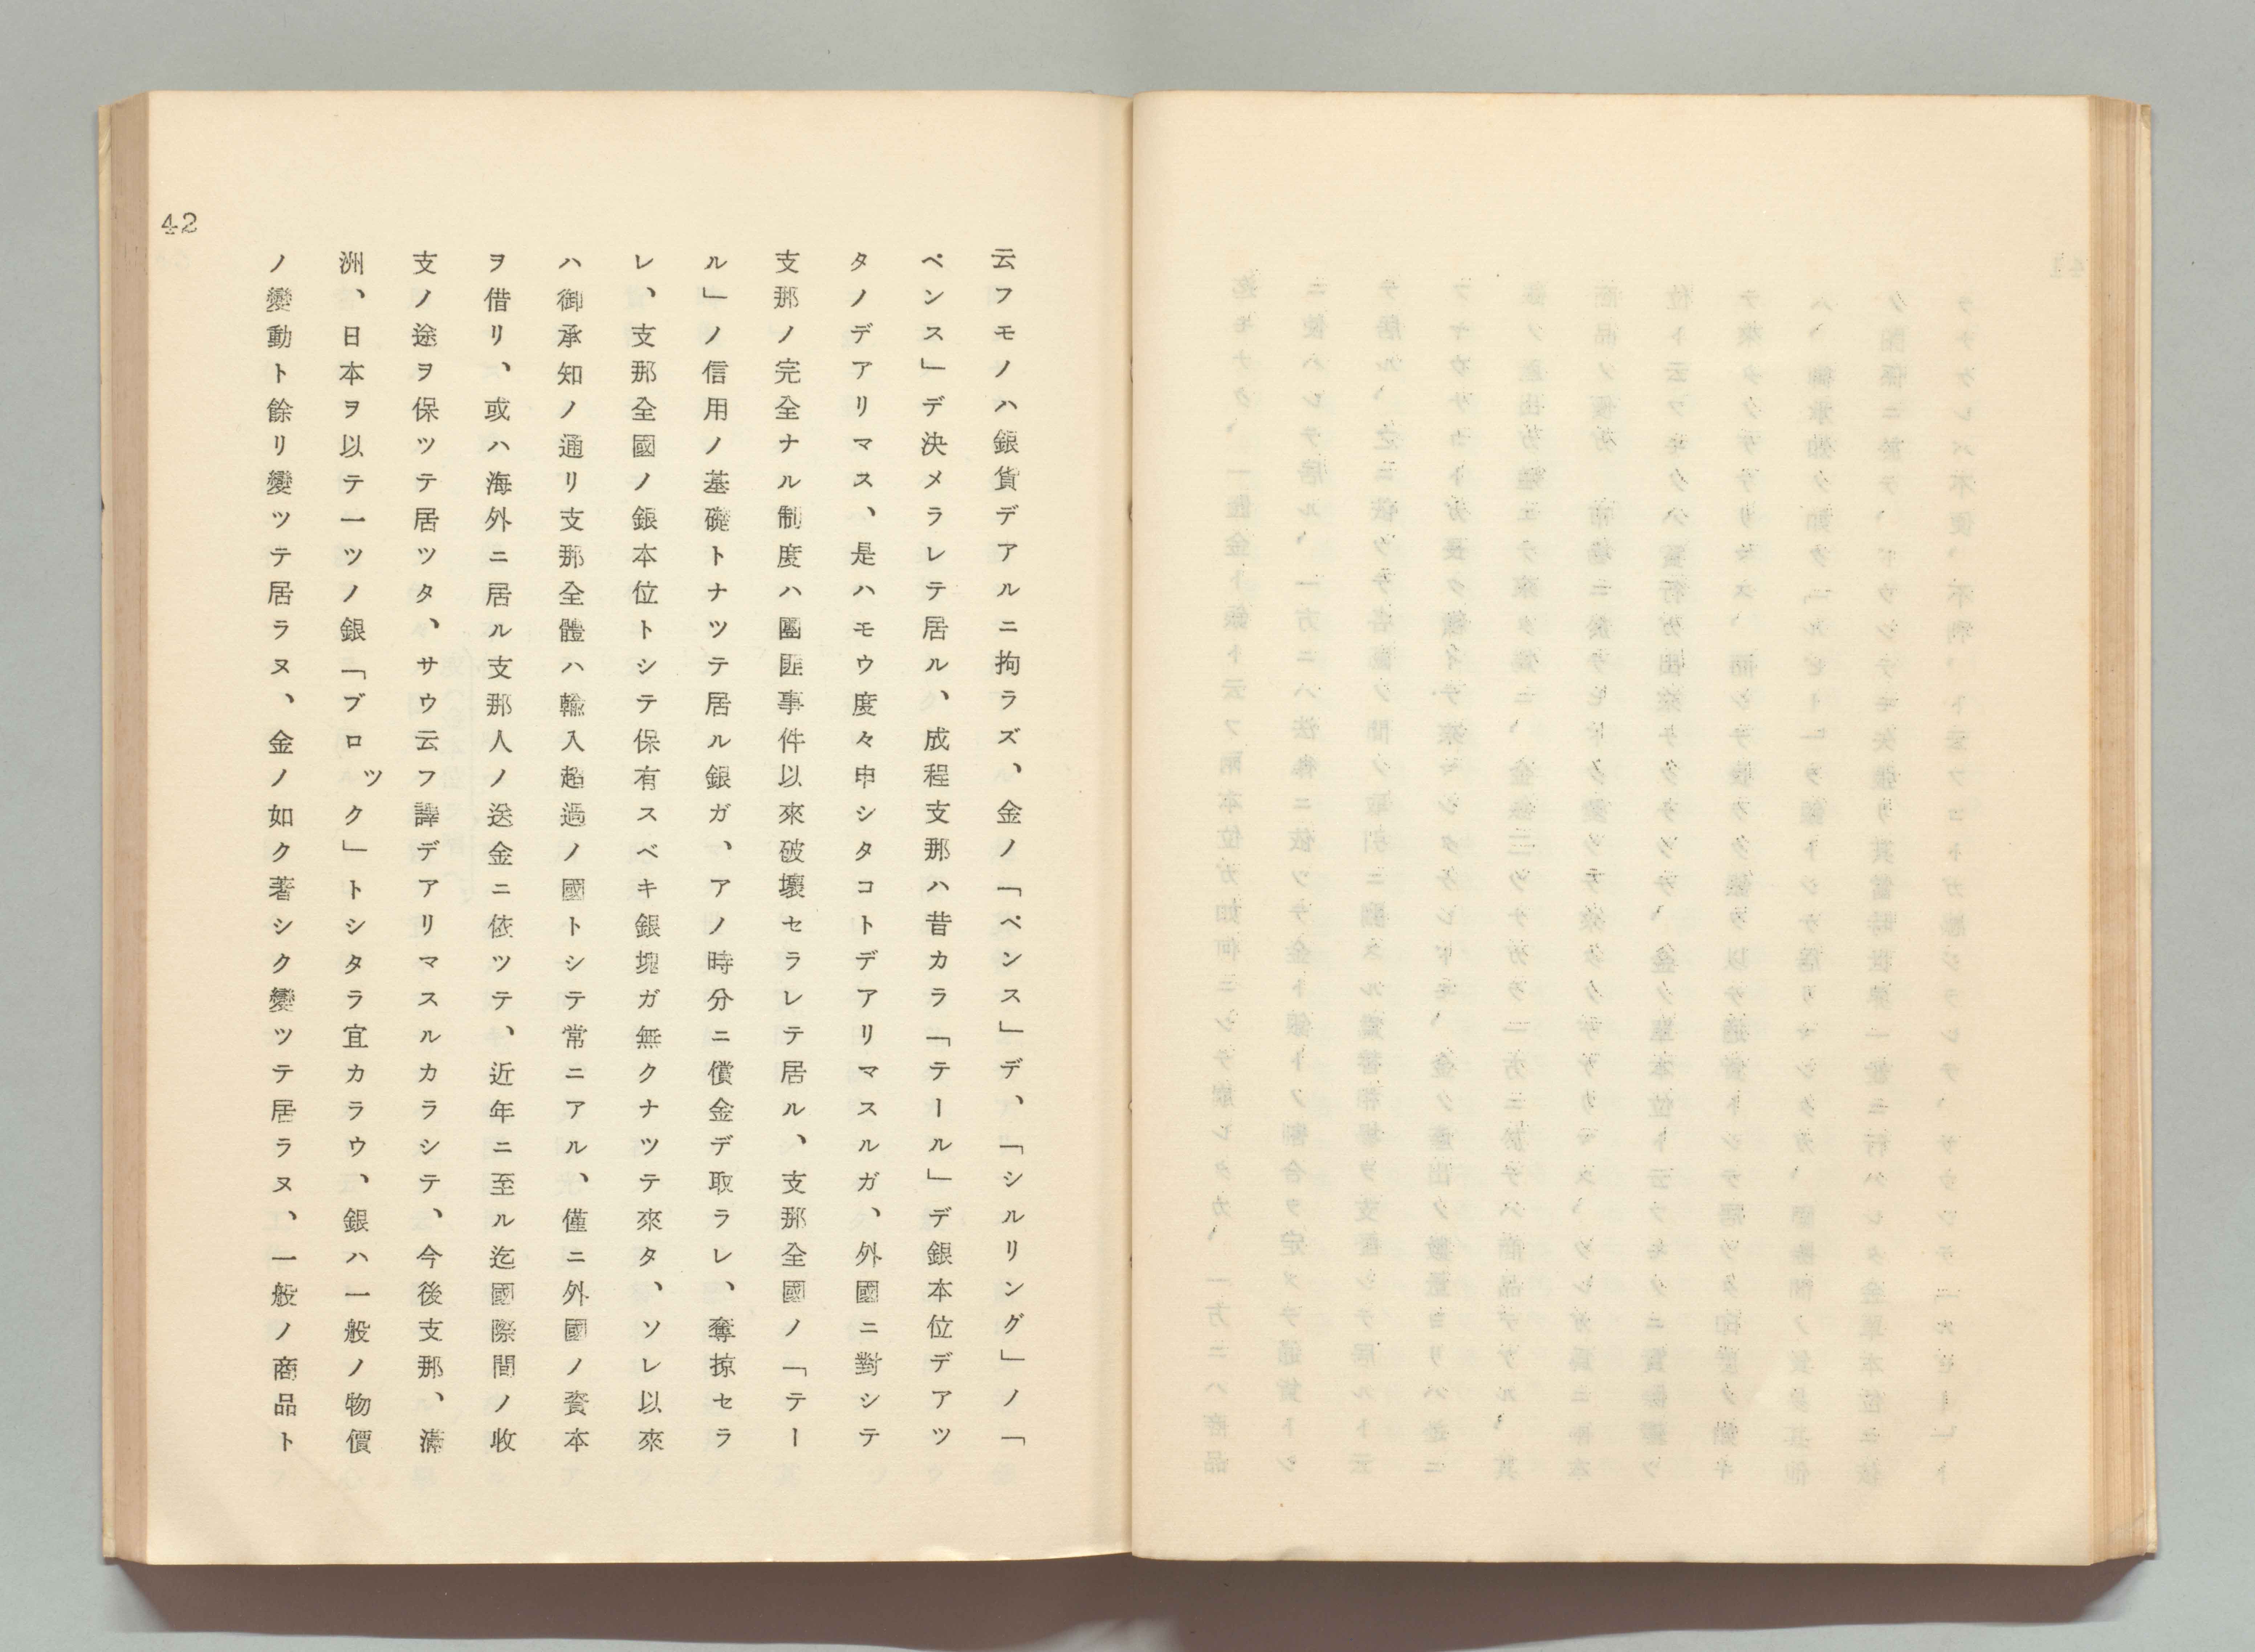 云フモノハ銀貨デアルニ拘ラズ、金ノ「ペンス」デ、「シルリング」ノ「
ペンス」デ決メラレテ居ル、成程支那ハ昔カラ「テール」デ銀本位デアツ
タノデアリマス、是ハモウ度々申シタコトデアリマスルガ、外國ニ對シテ
支那ノ完全ナル制度ハ團匪事件以來破壞セラレテ居ル、支那全國ノ「テー
ル」ノ信用ノ基礎トナツテ居ル銀ガ、アノ時分ニ償金デ取ラレ、奪掠セラ
レ、支那全國ノ銀本位トシテ保有スベキ銀塊ガ無クナツテ來タ、ソレ以來
ハ御承知ノ通リ支那全體ハ輸入超過ノ國トシテ常ニアル、僅ニ外國ノ資本
ヲ借リ、或ハ海外ニ居ル支那人ノ送金ニ依ツテ、近年ニ至ル迄國際間ノ收
支ノ途ヲ保ツテ居ツタ、サウ云フ譯デアリマスルカラシテ、今後支那、滿
洲、日本ヲ以テ一ツノ銀「ブロック」トシタラ宜カラウ、銀ハ一般ノ物價
ノ變動ト餘リ變ツテ居ラヌ、金ノ如ク著シク變ツテ居ラヌ、一般ノ商品ト
42